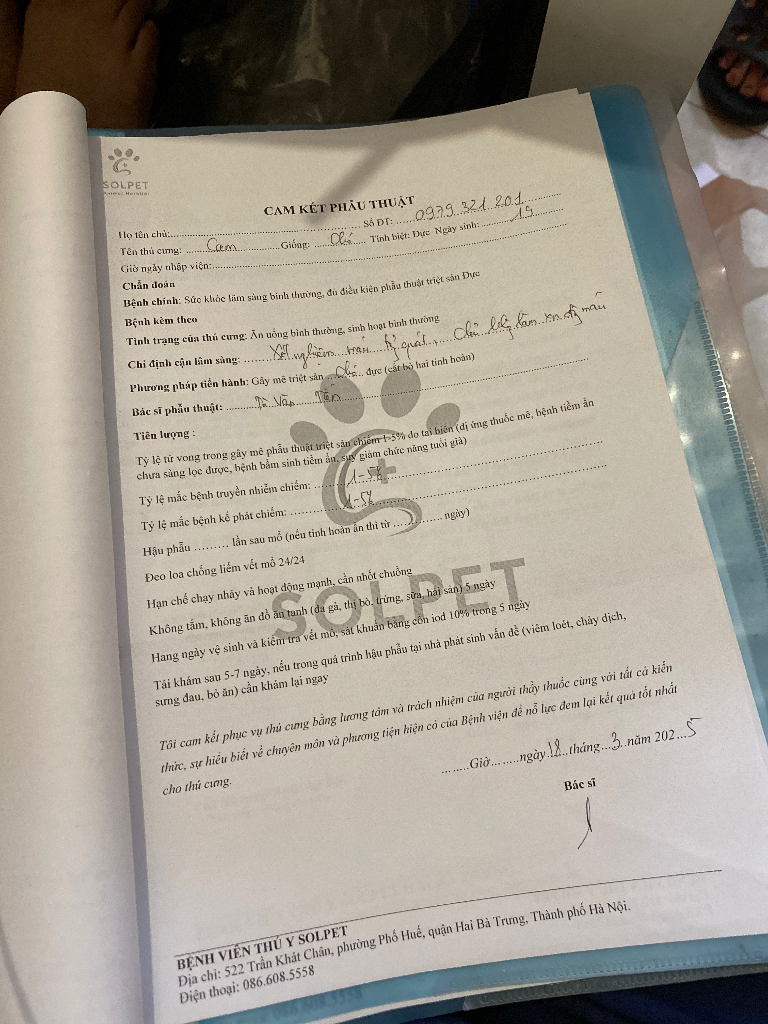 SOLPET
Animal Hospital
CAM KẾT PHẪU THUẬT
Họ tên chủ:.......... Số ĐT: 0979.321.201
Tên thú cưng: Cam Giống: Chó Tính biệt: Đực Ngày sinh: 19
Giờ ngày nhập viện:..........
Chẩn đoán
Bệnh chính: Sức khỏe lâm sàng bình thường, đủ điều kiện phẫu thuật triệt sản Đực
Bệnh kèm theo
Tình trạng của thú cưng: Ăn uống bình thường, sinh hoạt bình thường
Chỉ định cận lâm sàng: Xét nghiệm máu tổng quát, Chủ không làm xn máu
Phương pháp tiến hành: Gây mê triệt sản Chó đực (cắt bỏ hai tinh hoàn)
Bác sĩ phẫu thuật: Văn
Tiên lượng :
Tỷ lệ tử vong trong gây mê phẫu thuật triệt sản chiếm 1-5% do tai biến (dị ứng thuốc mê, bệnh tiềm ẩn
chưa sàng lọc được, bệnh bẩm sinh tiềm ẩn, suy giảm chức năng tuổi già)
Tỷ lệ mắc bệnh truyền nhiễm chiếm: 1-5%
Tỷ lệ mắc bệnh kế phát chiếm: 1-5%
Hậu phẫu ......... lần sau mổ (nếu tinh hoàn ẩn thì từ .......... ngày)
Đeo loa chống liếm vết mổ 24/24
Hạn chế chạy nhảy và hoạt động mạnh, cần nhốt chuồng
Không tắm, không ăn đồ ăn tanh (da gà, thị bò, trứng, sữa, hải sản) 5 ngày
Hang ngày vệ sinh và kiểm tra vết mổ, sát khuẩn bằng cồn iod 10% trong 5 ngày
Tái khám sau 5-7 ngày, nếu trong quá trình hậu phẫu tại nhà phát sinh vấn đề (viêm loét, chảy dịch,
sưng đau, bỏ ăn) cần khám lại ngay
Tôi cam kết phục vụ thú cưng bằng lương tâm và trách nhiệm của người thầy thuốc cùng với tất cả kiến
thức, sự hiểu biết về chuyên môn và phương tiện hiện có của Bệnh viện để nỗ lực đem lại kết quả tốt nhất
cho thú cưng.
........Giờ........ngày 12 tháng 3 năm 2025
Bác sĩ
SOLPET
BỆNH VIỆN THÚ Y SOLPET
Địa chỉ: 522 Trần Khát Chân, phường Phố Huế, quận Hai Bà Trưng, Thành phố Hà Nội.
Điện thoại: 086.608.5558